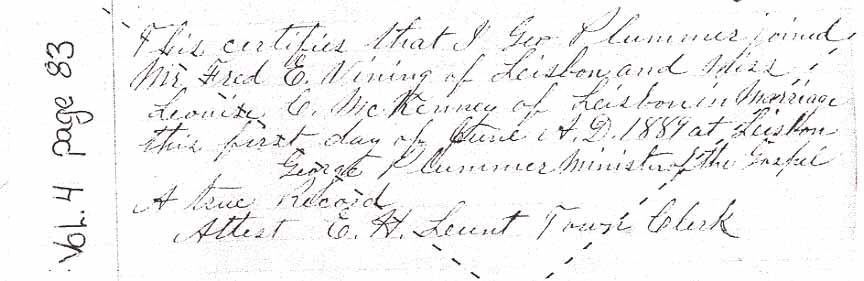 Vol. 4 page 83
This certifies that I Geo Plummer joined
Mr Fred E. Vining of Lisbon and Miss
C. McKenney of Lisbon in Marriage
this first day of June A.D. 1889 at Lisbon
George Plummer Minister of the Gospel
A true Record
Attest E. H. Lunt Town Clerk